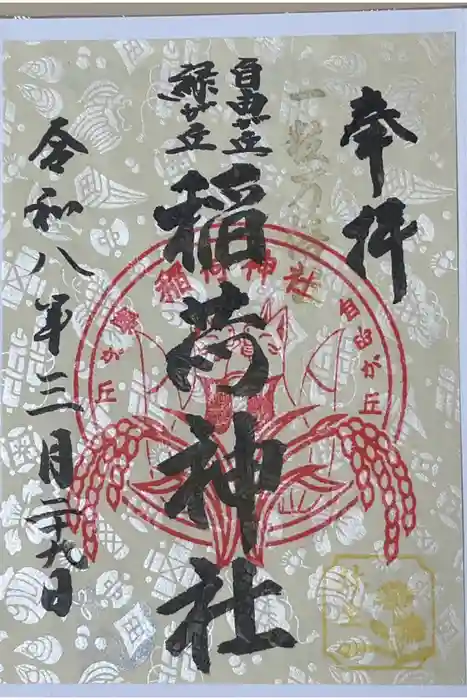 奉拝
一粒万倍
自由が丘
緑が丘
稲荷神社
令和八年三月二十九日
自由が丘
稲荷神社
緑が丘